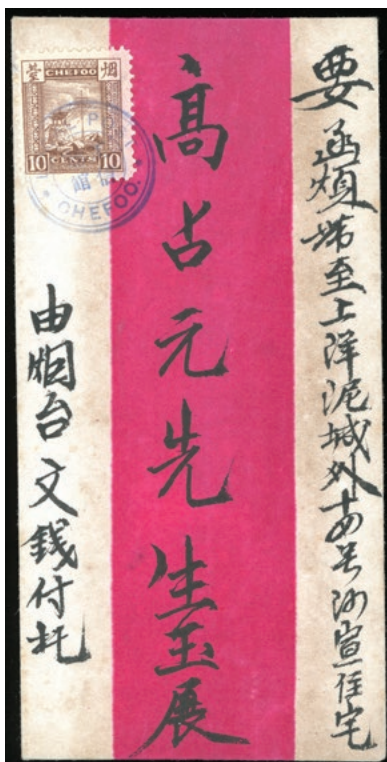 要函煩帶至上洋泥城外十四号沙宣住宅
高古元先生玉展
由烟台文錢付托
烟臺
CHEFOO
10 CENTS 10
CHEFOO.